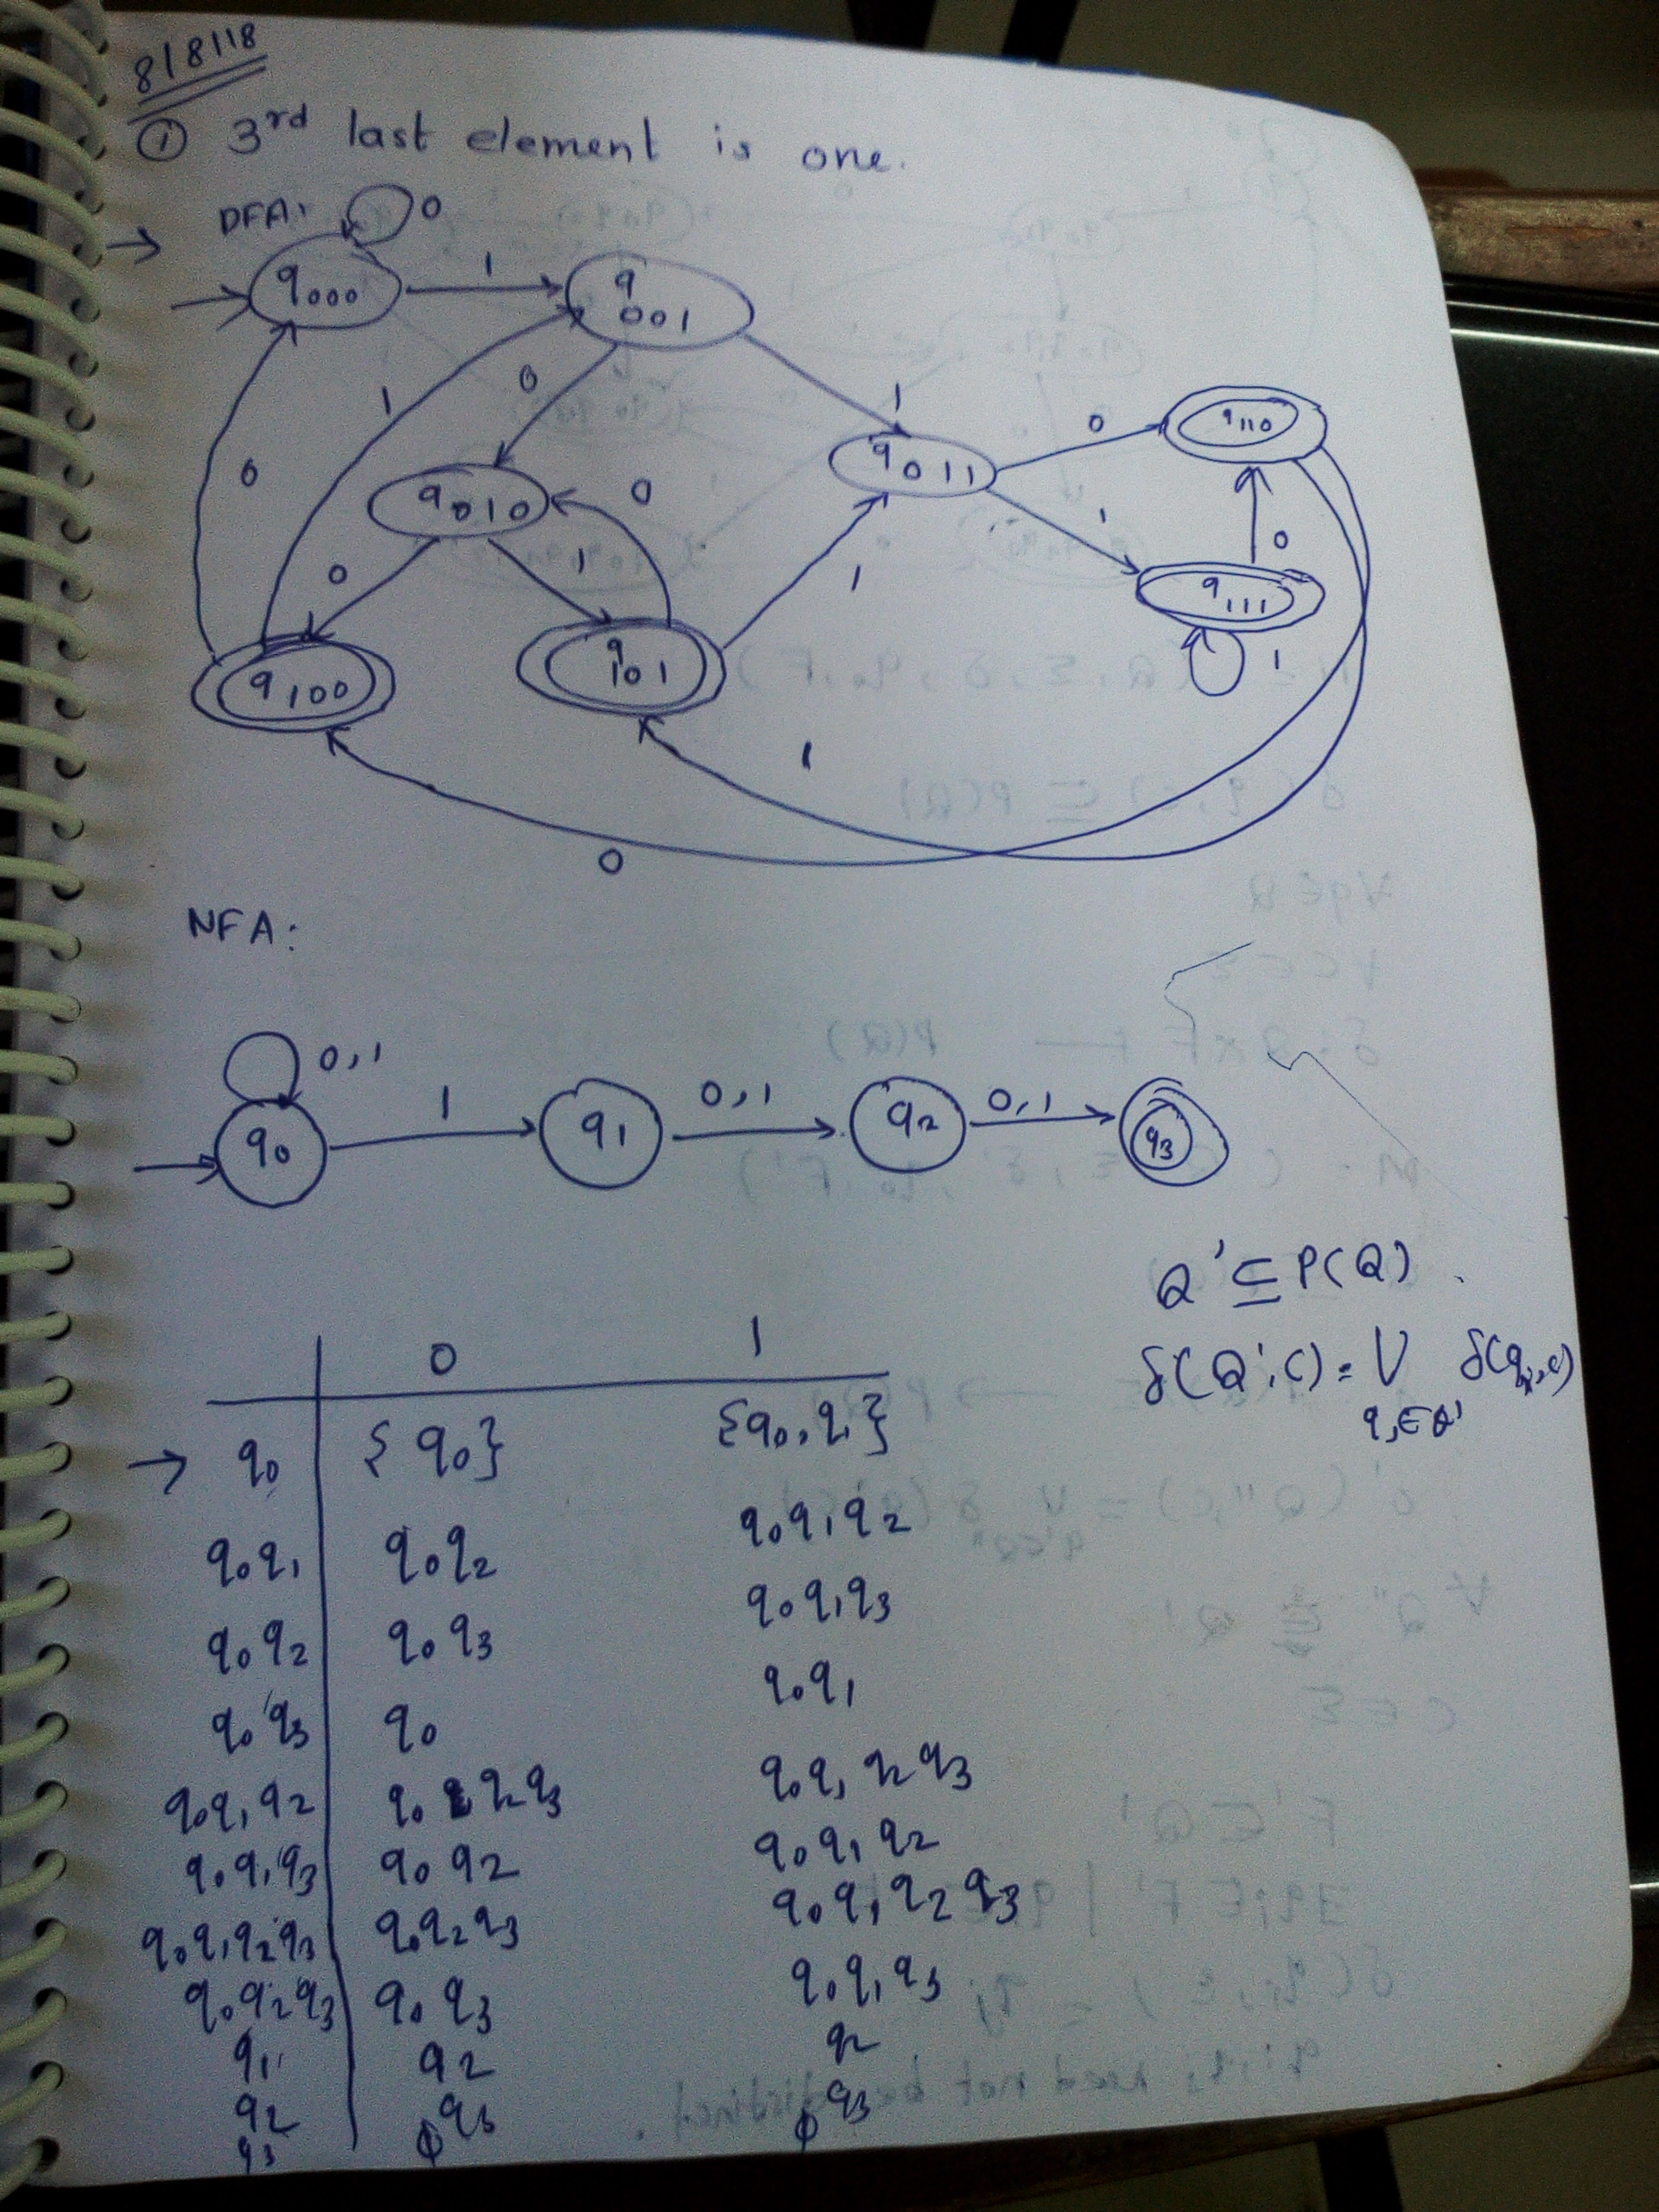 8/8/18
① 3rd last element is one.
→ DFA:
0
q000 1 q001
1 0 1
0 q110
q011
q010 0
0
1 0
0 1 1
q111
q100 q101 1
1
0
NFA:
0,1
q0 1 q1 0,1 q2 0,1 q3
Q' ⊆ P(Q).
0 1
δ(Q',c) = ∪ δ(qi,c)
qi∈Q'
→ q0 {q0} {q0,q1}
q0q1 q0q2 q0q1q2
q0q2 q0q3 q0q1q3
q0q3 q0 q0q1
q0q1q2 q0q2q3 q0q1q2q3
q0q1q3 q0q2 q0q1q2
q0q1q2q3 q0q2q3 q0q1q2q3
q0q2q3 q0q3 q0q1q3
q1 q2 q2
q2 q3 q3
q3 ϕ ϕ